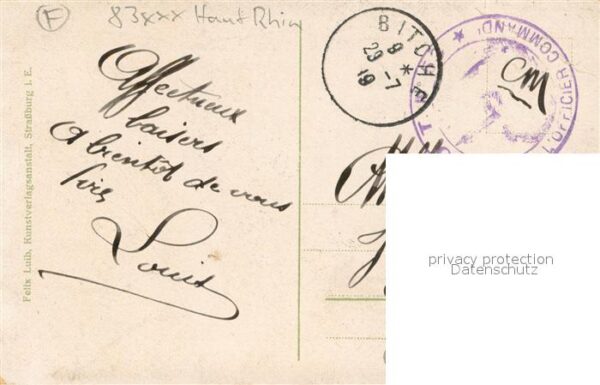 F 83xxx Haut Rhin
Affectueux
baisers
A bientôt de vous
voir
Louis
Felix Luib, Kunstverlagsanstalt, Straßburg i. E.
BITCHE
8
29-7
19
*
L'OFFICIER COMMANDt
CM
privacy protection
Datenschutz